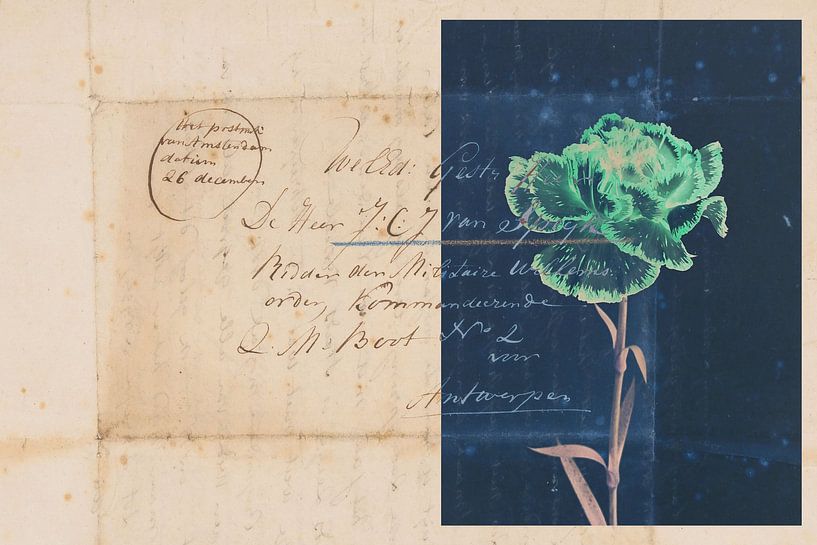 Het postmk:
van Amsterdam
datum
26 december
WelEd: Gestr
De Heer J: C: J van
Ridder der Militaire Willems
orden, Kommandeerende
Z. M. Boot No 2
voor
Antwerpen